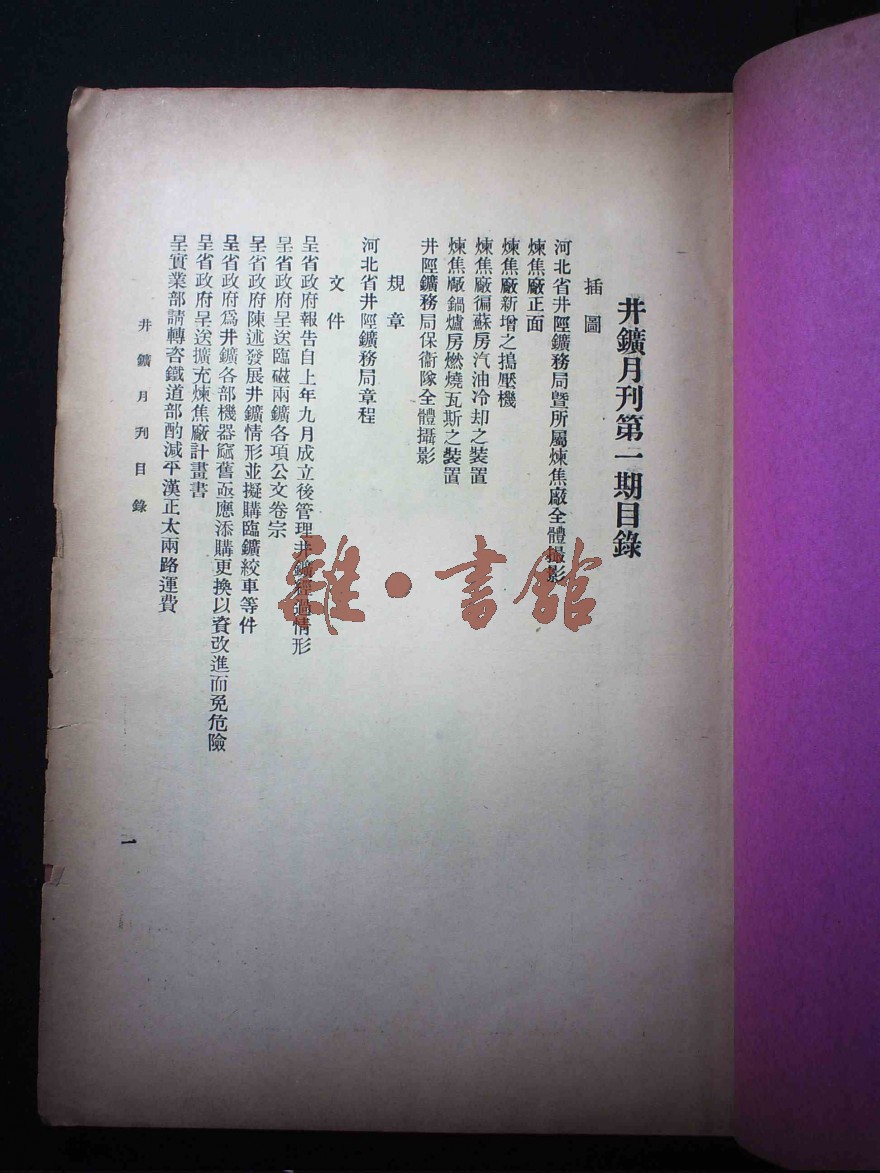 井鑛月刊第一期目錄
插圖
河北省井陘鑛務局暨所屬煉焦廠全體撮影
煉焦廠正面
煉焦廠新增之搗壓機
煉焦廠徧蘇房汽油冷却之裝置
煉焦廠鍋爐房燃燒瓦斯之裝置
井陘鑛務局保衞隊全體攝影
規章
河北省井陘鑛務局章程
文件
呈省政府報告自上年九月成立後管理井鑛經過情形
呈省政府呈送臨磁兩鑛各項公文卷宗
呈省政府陳述發展井鑛情形並擬購臨鑛絞車等件
呈省政府爲井鑛各部機器窳舊亟應添購更換以資改進而免危險
呈省政府呈送擴充煉焦廠計畫書
呈實業部請轉咨鐵道部酌減平漢正太兩路運費
井鑛月刋目錄
一
雜·書館